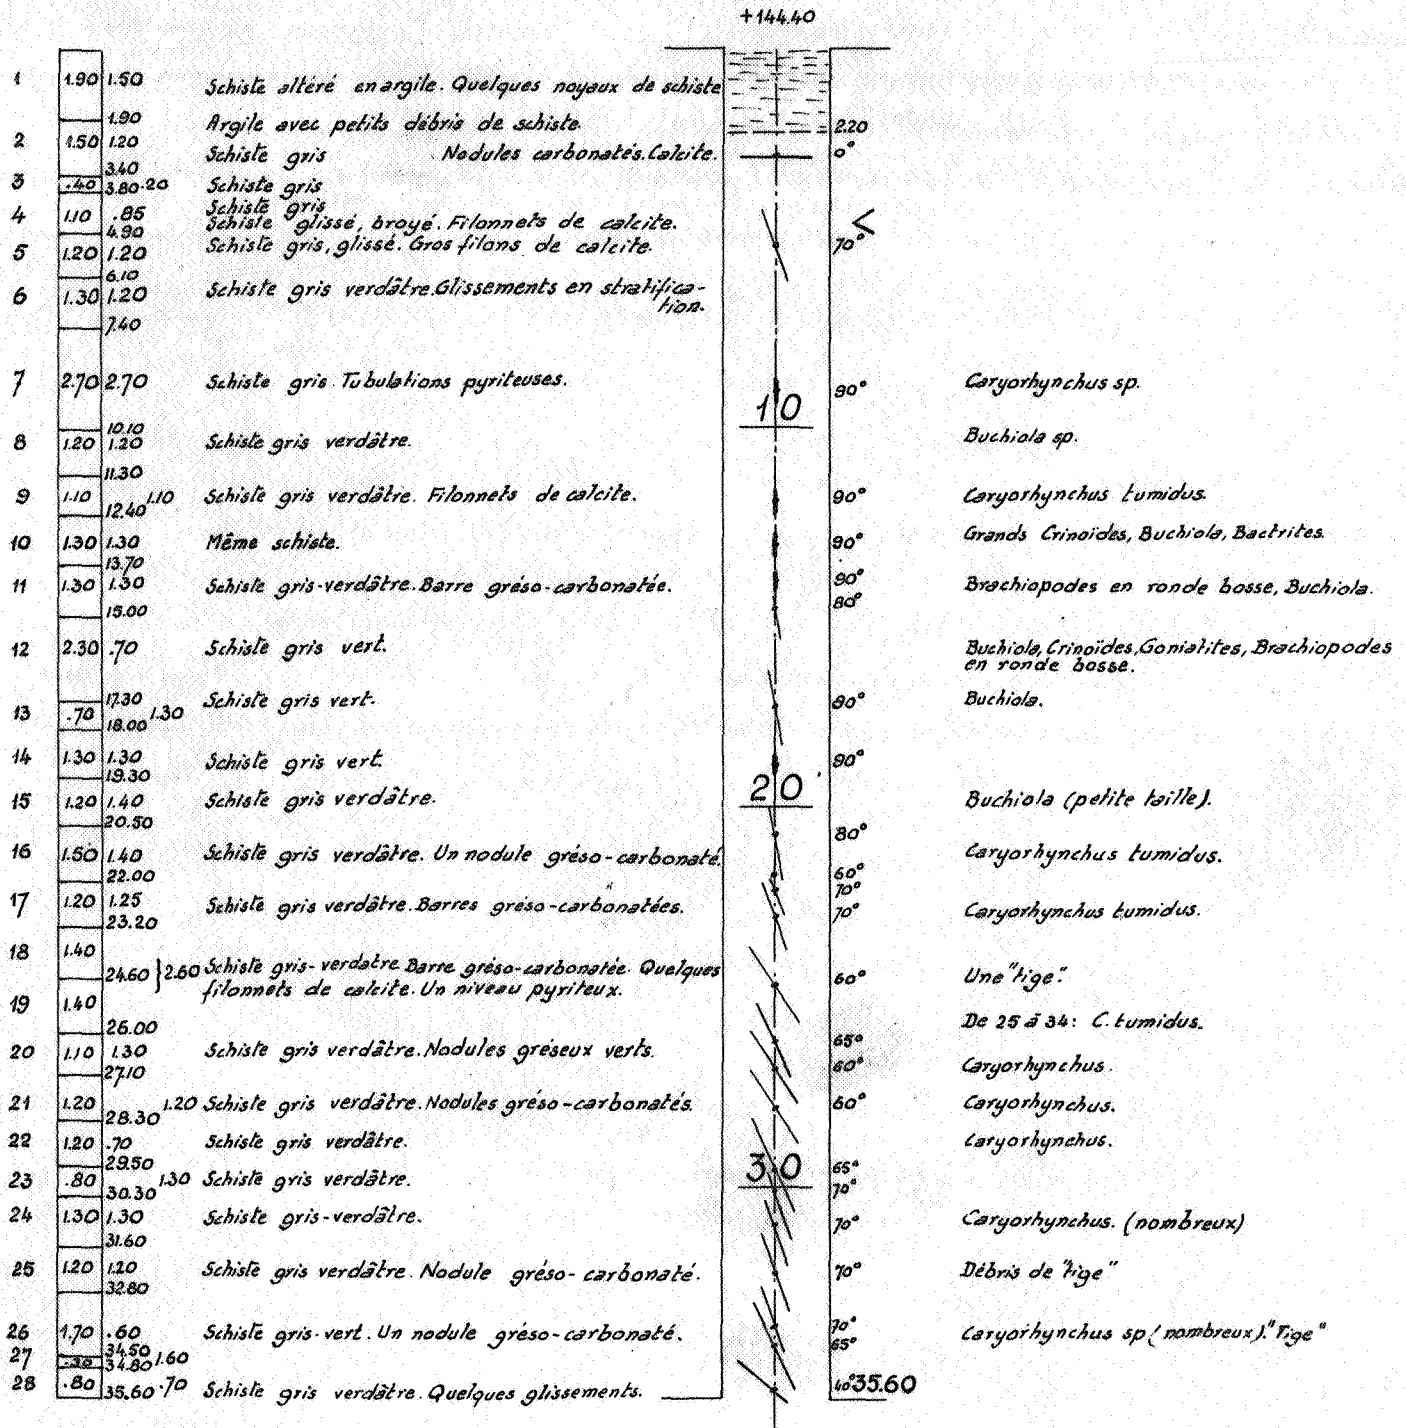 +144.40
1 1.90 1.50 Schiste altéré en argile. Quelques noyaux de schiste
1.90 Argile avec petits débris de schiste. 2.20
2 1.50 1.20 Schiste gris Nodules carbonatés. Calcite. 0°
3.40
3 .40 3.80 .20 Schiste gris
Schiste gris
4 1.10 .85 Schiste glissé, broyé. Filonnets de calcite. <
4.90
5 1.20 1.20 Schiste gris, glissé. Gros filons de calcite. 70°
6.10
6 1.30 1.20 Schiste gris verdâtre. Glissements en stratifica-
tion.
7.40
7 2.70 2.70 Schiste gris. Tubulations pyriteuses. 90° Caryorhynchus sp.
10
10.10
8 1.20 1.20 Schiste gris verdâtre. Buchiola sp.
11.30
9 1.10 1.10 Schiste gris verdâtre. Filonnets de calcite. 90° Caryorhynchus tumidus.
12.40
10 1.30 1.30 Même schiste. 90° Grands Crinoïdes, Buchiola, Bactrites.
13.70
11 1.30 1.30 Schiste gris-verdâtre. Barre gréso-carbonatée. 90° Brachiopodes en ronde bosse, Buchiola.
15.00 80°
12 2.30 .70 Schiste gris vert. Buchiola, Crinoïdes, Goniatites, Brachiopodes
en ronde bosse.
17.30
13 .70 1.30 Schiste gris vert. 80° Buchiola.
18.00
14 1.30 1.30 Schiste gris vert. 90°
19.30
20
15 1.20 1.40 Schiste gris verdâtre. Buchiola (petite taille).
20.50 80°
16 1.50 1.40 Schiste gris verdâtre. Un nodule gréso-carbonaté. Caryorhynchus tumidus.
22.00 60°
70°
17 1.20 1.25 Schiste gris verdâtre. Barres gréso-carbonatées. 70° Caryorhynchus tumidus.
23.20
18 1.40
24.60 }2.60 Schiste gris-verdatre Barre gréso-carbonatée. Quelques 60° Une "tige".
filonnets de calcite. Un niveau pyriteux.
19 1.40
26.00 De 25 à 34: C. tumidus.
65°
20 1.10 1.30 Schiste gris verdâtre. Nodules gréseux verts. 60° Caryorhynchus.
27.10
21 1.20 1.20 Schiste gris verdâtre. Nodules gréso-carbonatés. 60° Caryorhynchus.
28.30
22 1.20 .70 Schiste gris verdâtre. Caryorhynchus.
29.50
30 65°
23 .80 1.30 Schiste gris verdâtre. 70°
30.30
24 1.30 1.30 Schiste gris-verdâtre. 70° Caryorhynchus. (nombreux)
31.60
25 1.20 1.20 Schiste gris verdâtre. Nodule gréso-carbonaté. 70° Débris de "tige"
32.80
26 1.70 .60 Schiste gris-vert. Un nodule gréso-carbonaté. 70° Caryorhynchus sp (nombreux). "Tige"
34.50 65°
27 .30 34.80 1.60
28 .80 35.60 .70 Schiste gris verdâtre. Quelques glissements. 40° 35.60